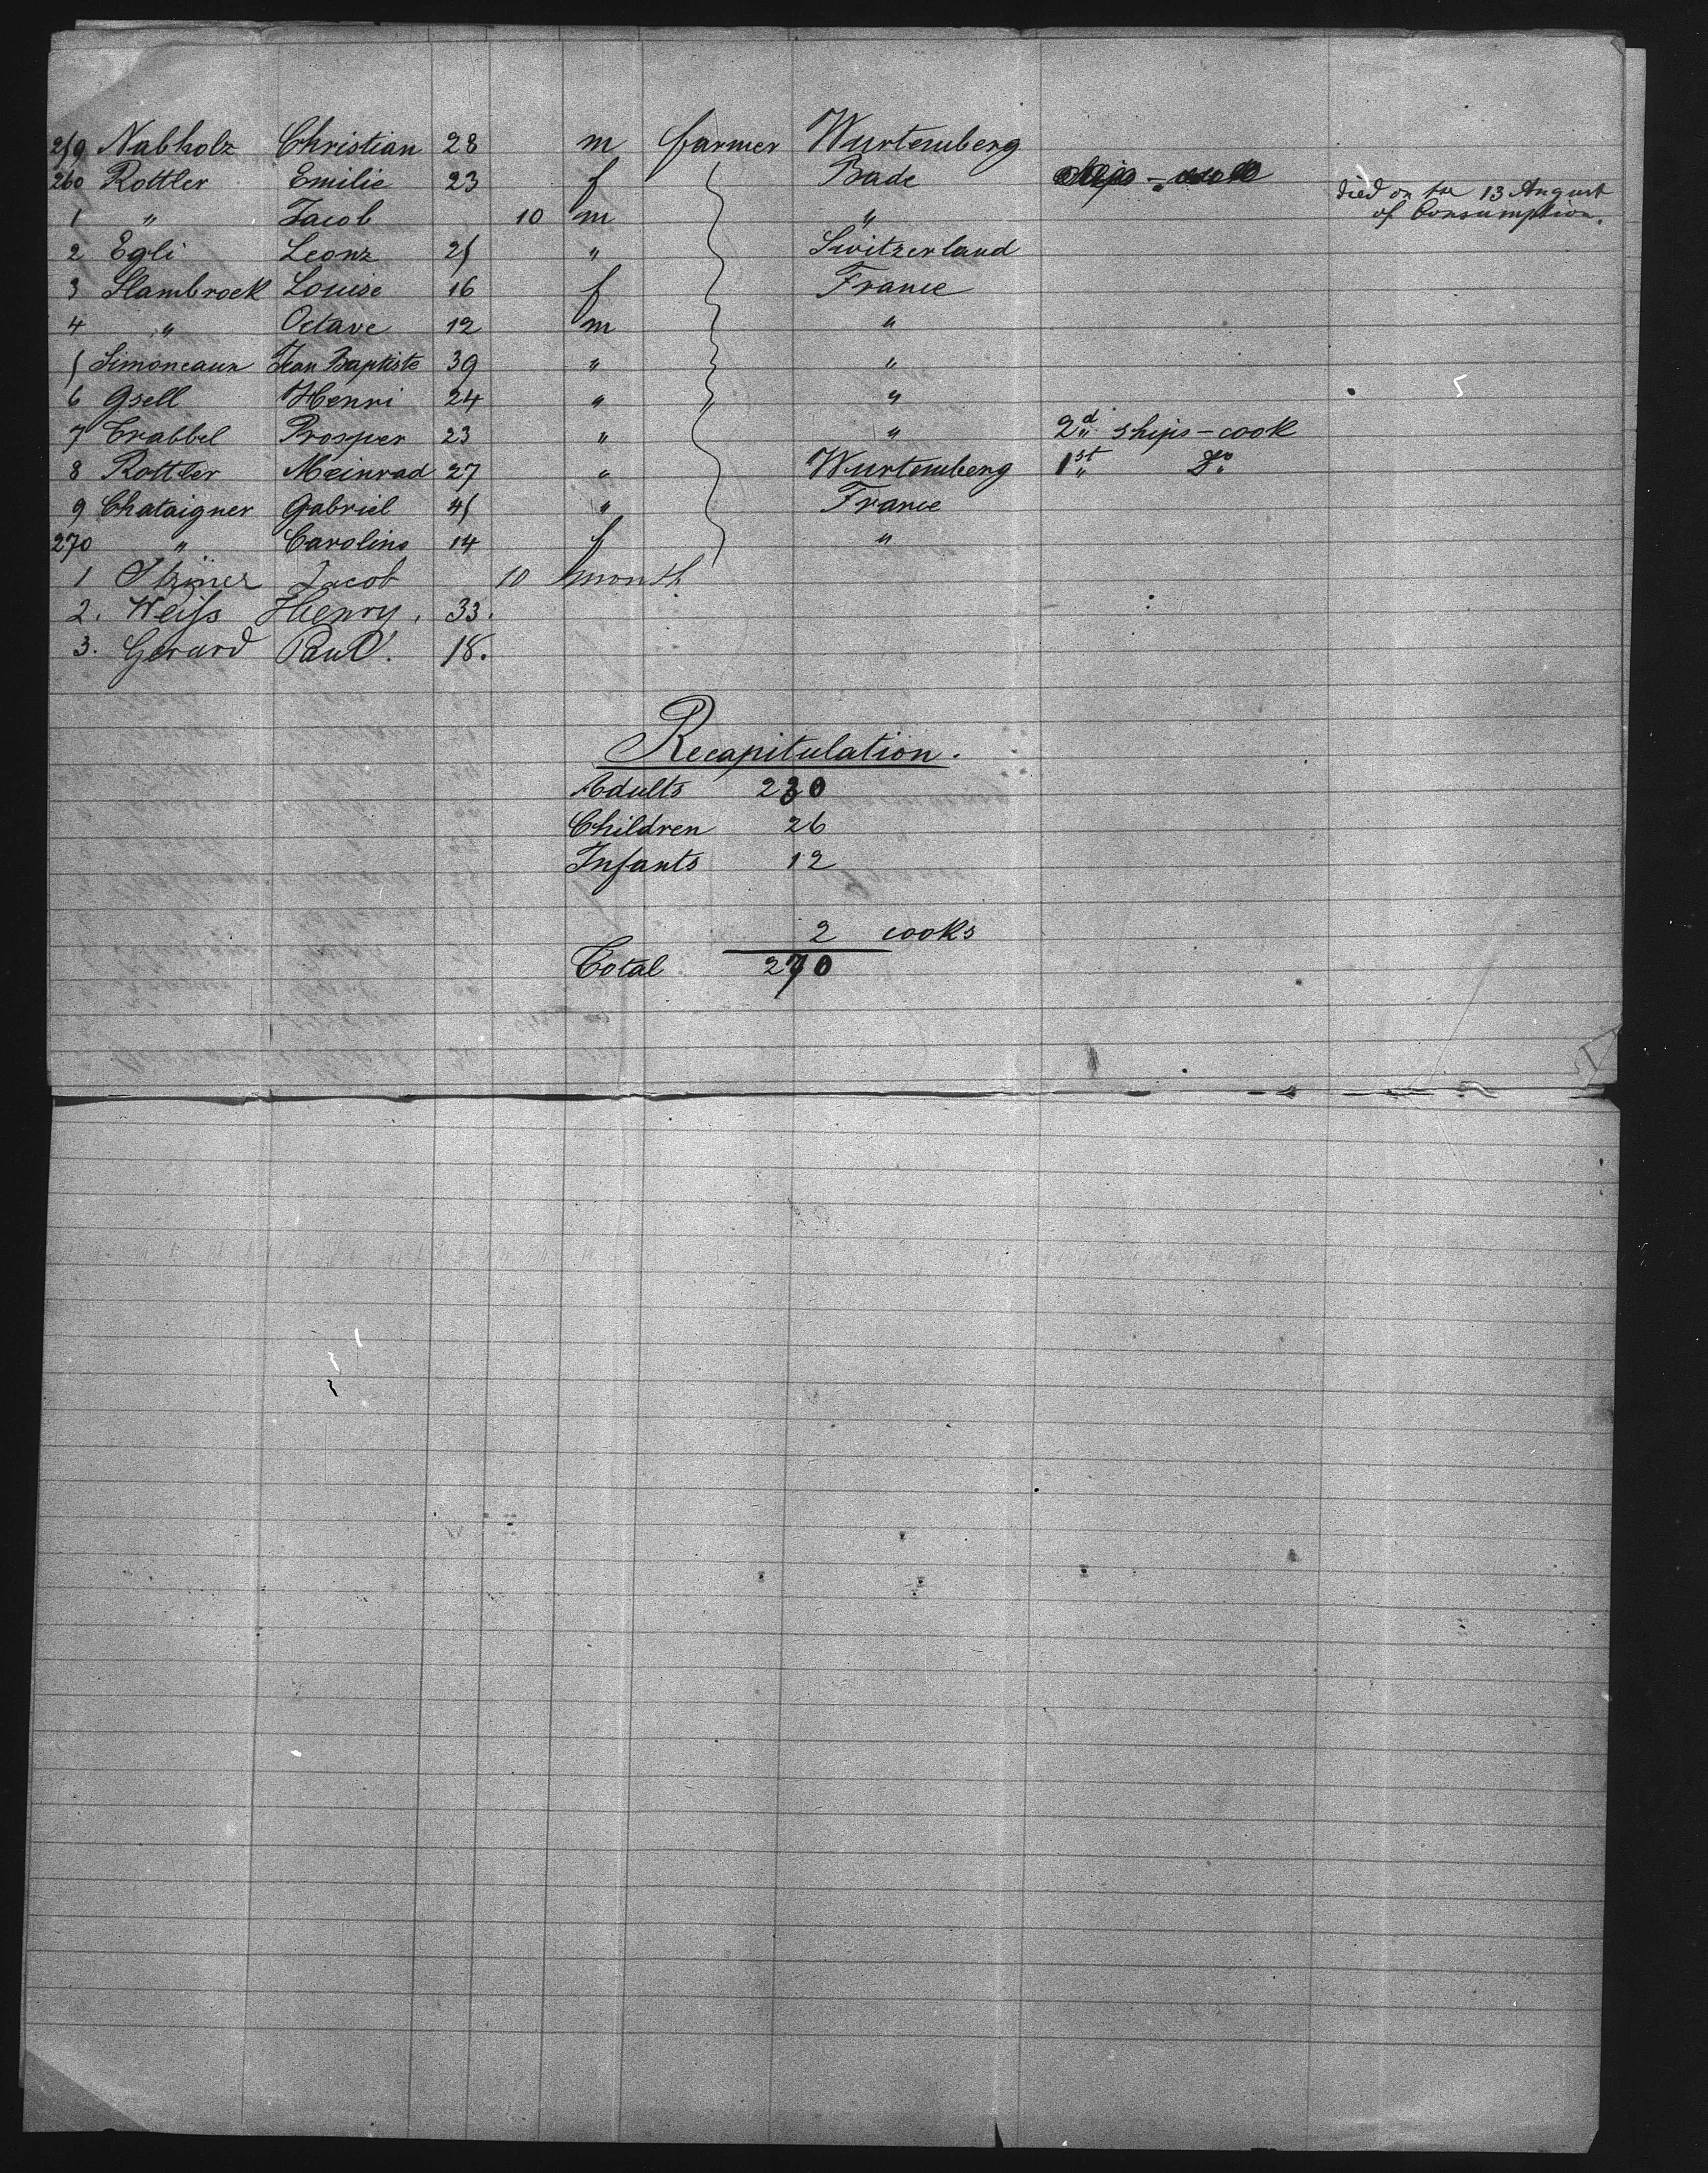 259 Nabholz Christian 28 m farmer Wurtemberg
260 Rottler Emilie 23 f Bade
1 " Jacob 10 m " died on the 13 August
of Consumption.
2 Egli Leonz 25 " Switzerland
3 Hambrock Louise 16 f France
4 " Octave 12 m "
5 Simoneaux Jean Baptiste 39 " "
6 Gsell Henri 24 " " "
7 Crabbel Prosper 23 " " 2d ships-cook
8 Rottler Meinrad 27 " Wurtemberg 1st do
9 Chataigner Gabriel 45 " France
270 " Caroline 14 f "
1 Jacob 10 month
2. Weiss Henry. 33.
3. Gerard Paul. 18.
Recapitulation.
Adults 230
Children 26
Infants 12
2 cooks
Total 270